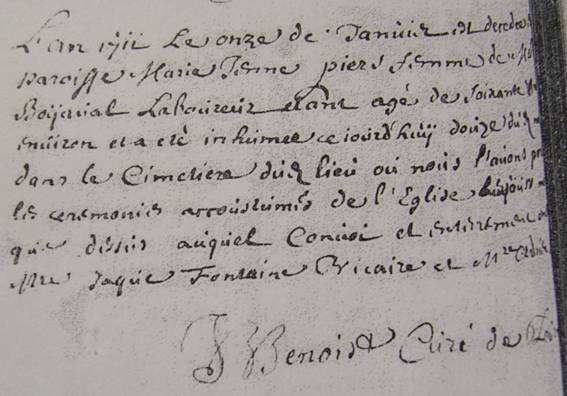 L'an 1711 Le onze de Janvier est decedee
paroisse Marie Jenne piers femme de
Boijaval Laboureur etant agé de soixante
environ et a eté inhumee ce jourd'huÿ douze dud
dans le Cimetiere dud lieu où nous l'avons
les ceremonies accoustumés de l'Eglise
que dessus auquel Convoi et enterrement
Mre Jaque Fontaine Vicaire et Mre
Benoist Curé de